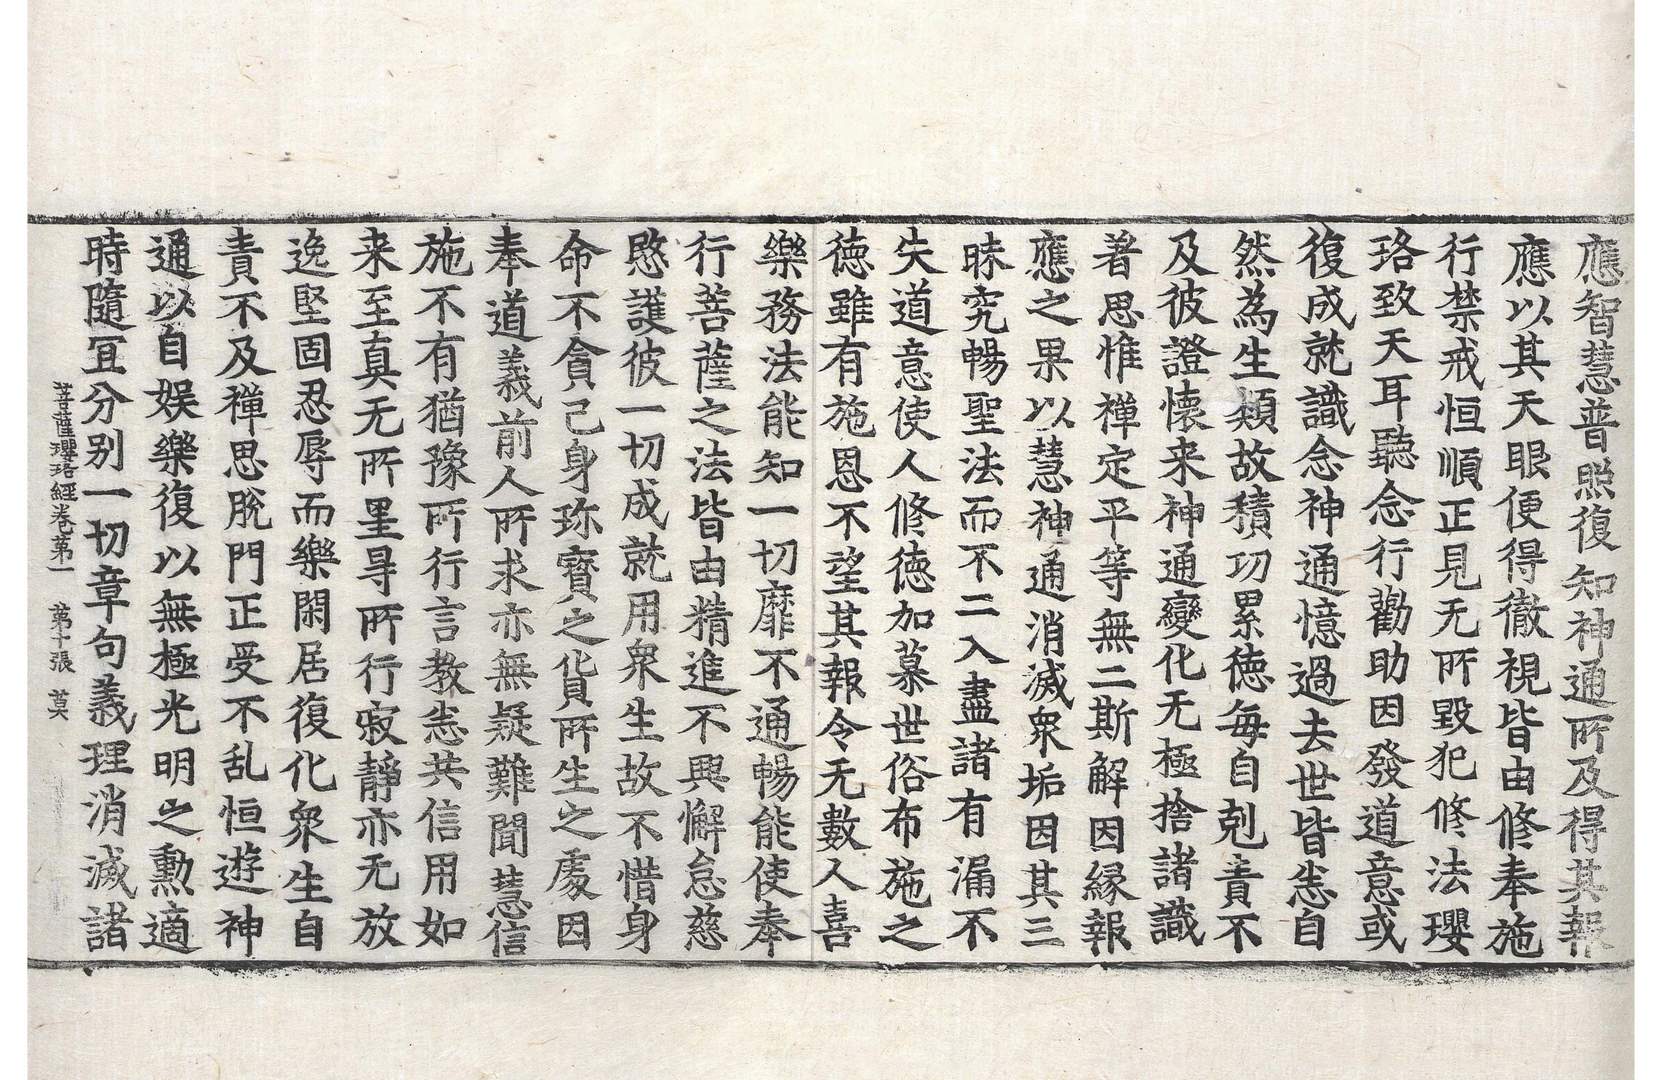 應智慧普照復知神通所及得其報
應以其天眼便得徹視皆由修奉施
行禁戒恒順正見无所毀犯修法瓔
珞致天耳聽念行勸助因發道意或
復成就識念神通憶過去世皆悉自
然為生類故積功累德每自剋責不
及彼證懷来神通變化无極捨諸識
著思惟禪定平等無二斯解因緣報
應之果以慧神通消滅衆垢因其三
昧究暢聖法而不二入盡諸有漏不
失道意使人修德加慕世俗布施之
德雖有施恩不望其報令无數人喜
樂務法能知一切靡不通暢能使奉
行菩薩之法皆由精進不興懈怠慈
愍護彼一切成就用衆生故不惜身
命不貪己身珎寶之貨所生之處因
奉道義前人所求亦無疑難聞慧信
施不有猶豫所行言教悉共信用如
来至真无所罣㝵所行寂靜亦无放
逸堅固忍辱而樂閑居復化衆生自
責不及禪思脫門正受不乱恒遊神
通以自娛樂復以無極光明之勳適
時隨冝分别一切章句義理消滅諸
菩薩瓔珞經卷第一 第十張 莫